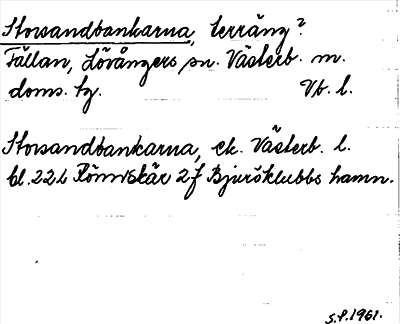 Storsandbankarna, terräng?
Fällan, Lövångers sn. Västerb. m.
doms. tg. Vb. l.
Storsandbankarna, ek. Västerb. l.
bl. 22 L Rönnskär 2 f Bjuröklubbs hamn.
S.P. 1961.